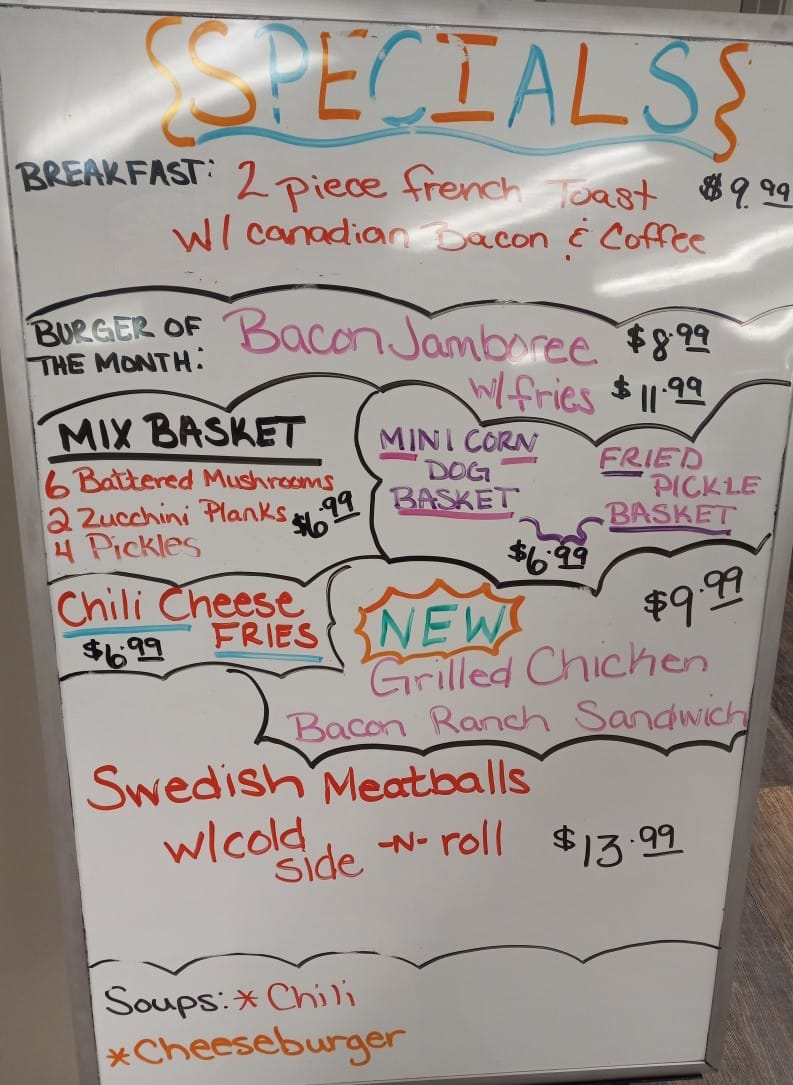 {SPECIALS}
BREAKFAST: 2 piece french Toast $9.99
w/ canadian Bacon & Coffee
BURGER OF THE MONTH: Bacon Jamboree $8.99
w/fries $11.99
MIX BASKET
6 Battered Mushrooms
2 Zucchini Planks $6.99
4 Pickles
MINI CORN
DOG
BASKET
FRIED
PICKLE
BASKET
$6.99
Chili Cheese
FRIES
$6.99
NEW
$9.99
Grilled Chicken
Bacon Ranch Sandwich
Swedish Meatballs
w/cold side -N- roll $13.99
Soups: * Chili
* Cheeseburger